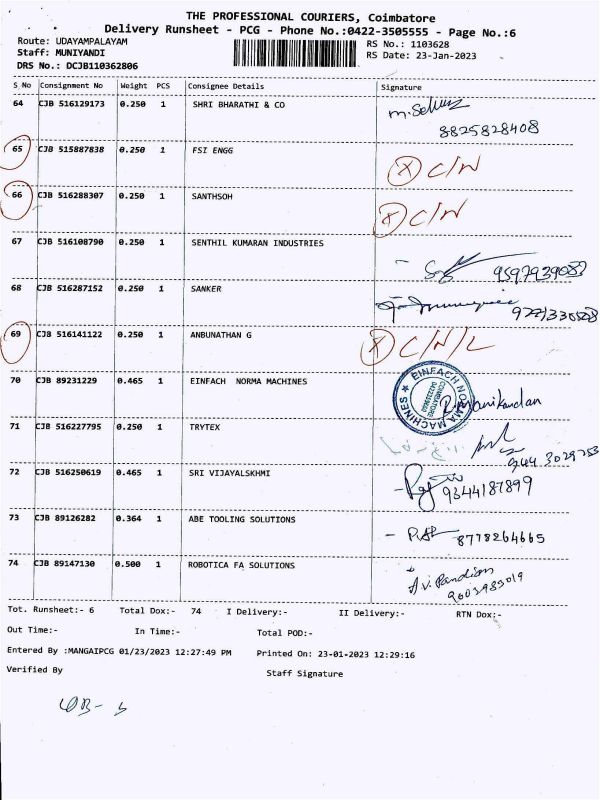 THE PROFESSIONAL COURIERS, Coimbatore
Delivery Runsheet - PCG - Phone No.:0422-3505555 - Page No.:6
Route: UDAYAMPALAYAM
Staff: MUNIYANDI
DRS No.: DCJB110362806
RS No.: 1103628
RS Date: 23-Jan-2023
S No Consignment No Weight PCS Consignee Details Signature
64 CJB 516129173 0.250 1 SHRI BHARATHI & CO
8825828408
65 CJB 515887838 0.250 1 FSI ENGG
X C/N
66 CJB 516288307 0.250 1 SANTHSOH
X C/N
67 CJB 516108790 0.250 1 SENTHIL KUMARAN INDUSTRIES
9597939087
68 CJB 516287152 0.250 1 SANKER
69 CJB 516141122 0.250 1 ANBUNATHAN G
X C/N/L
70 CJB 89231229 0.465 1 EINFACH NORMA MACHINES
EINFACH NORMA MACHINES
COIMBATORE
71 CJB 516227795 0.250 1 TRYTEX
944 3029753
72 CJB 516250619 0.465 1 SRI VIJAYALSKHMI
9344187899
73 CJB 89126282 0.364 1 ABE TOOLING SOLUTIONS
8778264665
74 CJB 89147130 0.500 1 ROBOTICA FA SOLUTIONS
A.V. Pandian
9003985019
Tot. Runsheet:- 6 Total Dox:- 74 I Delivery:- II Delivery:- RTN Dox:-
Out Time:- In Time:- Total POD:-
Entered By :MANGAIPCG 01/23/2023 12:27:49 PM Printed On: 23-01-2023 12:29:16
Verified By Staff Signature